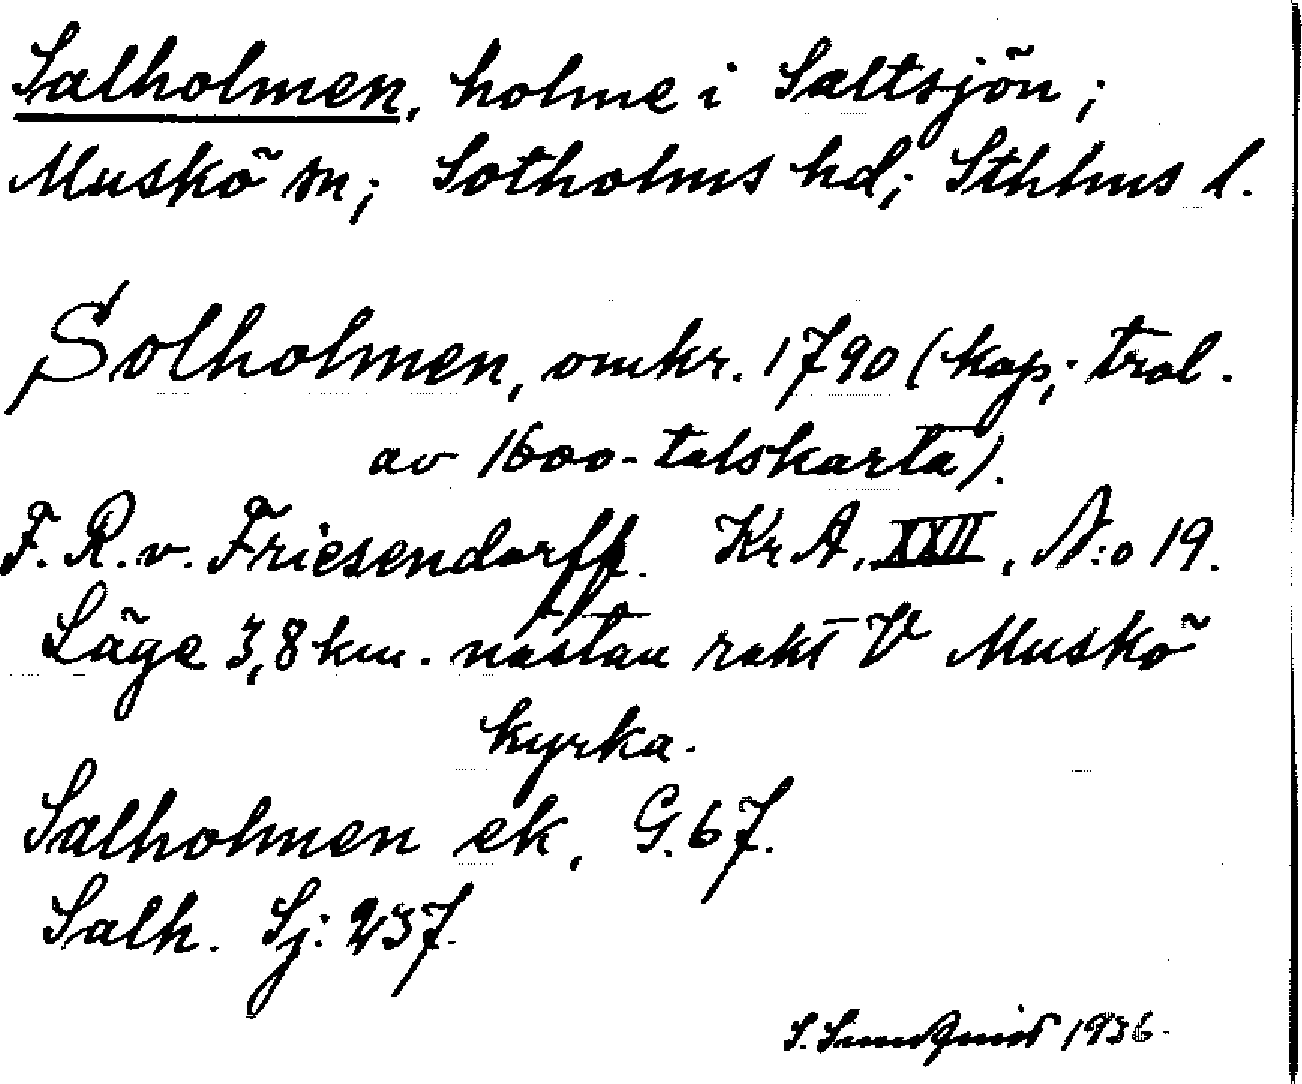 Salholmen, holme i Saltsjön;
Muskö sn; Sotholms hd; Sthlms l.
Solholmen, omkr. 1790 (kop; trol.
av 1600-talskarta).
F. R. v. Friesendorff. Kr. A. XXII, N:o 19.
Läge 3,8 km. nästan rakt V Muskö
kyrka.
Salholmen ek, G. 67.
Salh. Sj: 237.
S. Sundquist 1936.